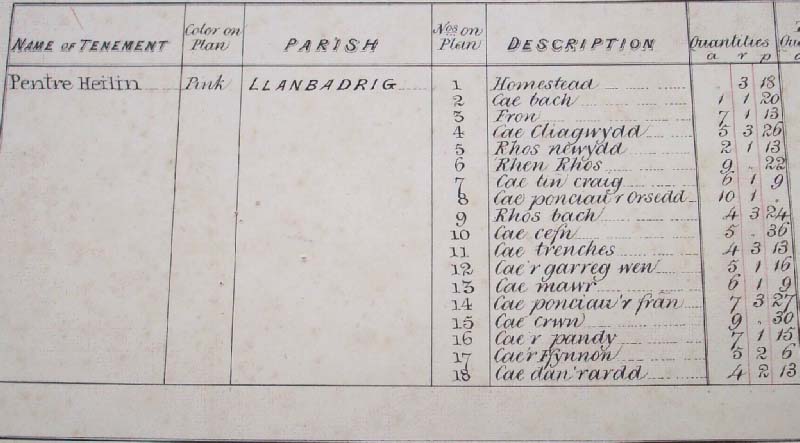 NAME OF TENEMENT Color on Plan PARISH Nos on Plan DESCRIPTION Quantities
a r p
Pentre Heilin Pink LLANBADRIG 1 Homestead . 3 18
2 Cae bach 1 1 20
3 Fron 7 1 13
4 Cae Cliagwydd 5 3 26
5 Rhos newydd 2 1 13
6 Rhen Rhos 9 . 22
7 Cae tin craig 6 1 9
8 Cae ponciau'r Orsedd 10 1 .
9 Rhos bach 4 3 24
10 Cae cefn 5 . 36
11 Cae trenches 4 3 13
12 Cae'r garreg wen 5 1 16
13 Cae mawr 6 1 9
14 Cae ponciau'r frân 7 3 27
15 Cae crwn 9 . 30
16 Cae'r pandy 7 1 15
17 Cae'r Ffynnon 5 2 6
18 Cae dan'rardd 4 2 13